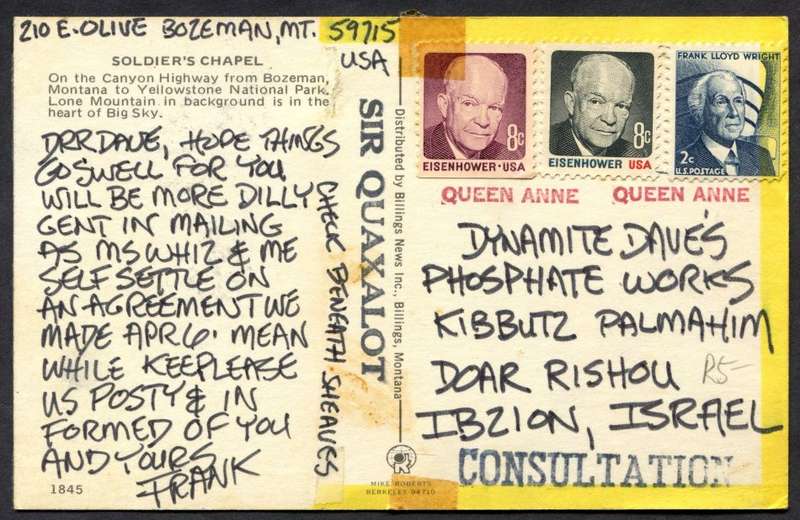 210 E. OLIVE BOZEMAN, MT. 59715
USA
SOLDIER'S CHAPEL
On the Canyon Highway from Bozeman,
Montana to Yellowstone National Park.
Lone Mountain in background is in the
heart of Big Sky.
DRR DAVE, HOPE THINGS
GO SWELL FOR YOU
WILL BE MORE DILLY
GENT IN MAILING
AS MS WHIZ & ME
SELF SETTLE ON
AN AGREEMENT WE
MADE APR 6. MEAN
WHILE KEEPLEASE
US POSTY & IN
FORMED OF YOU
AND YOURS
FRANK
1845
CHECK BENEATH SHEAVES
SIR QUAXALOT
Distributed by Billings News Inc., Billings, Montana
MIKE ROBERTS
BERKELEY 94710
8c
EISENHOWER · USA
8c
EISENHOWER USA
FRANK LLOYD WRIGHT
2c
U.S. POSTAGE
QUEEN ANNE QUEEN ANNE
DYNAMITE DAVE'S
PHOSPHATE WORKS
KIBBUTZ PALMAHIM
DOAR RISHOU
IBZION, ISRAEL
R5-
CONSULTATION